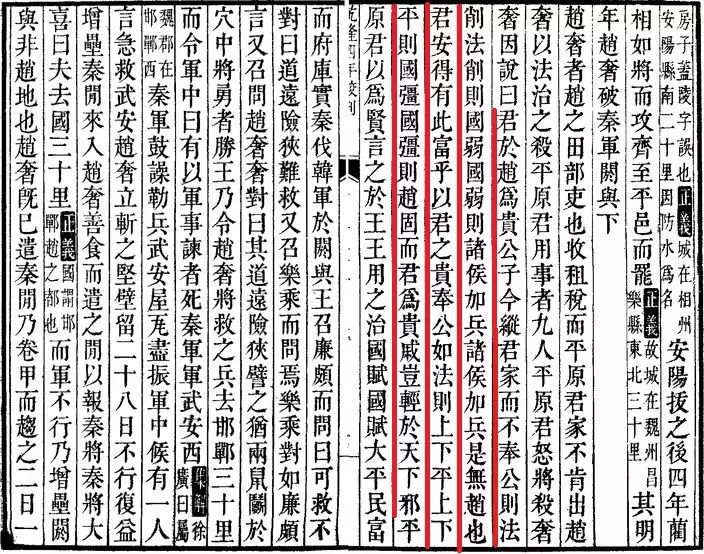 房子蓋陵字誤也正義城在相州安陽縣南二十里因防水爲名安陽拔之後四年藺
相如將而攻齊至平邑而罷正義故城在魏州昌樂縣東北三十里其明
年趙奢破秦軍閼與下
趙奢者趙之田部吏也收租稅而平原君家不肯出趙
奢以法治之殺平原君用事者九人平原君怒將殺奢
奢因說曰君於趙爲貴公子今縱君家而不奉公則法
削法削則國弱國弱則諸侯加兵諸侯加兵是無趙也
君安得有此富乎以君之貴奉公如法則上下平上下
平則國彊國彊則趙固而君爲貴戚豈輕於天下邪平
原君以爲賢言之於王王用之治國賦國賦大平民富
乾隆四年校刊
而府庫實秦伐韓軍於閼與王召廉頗而問曰可救不
對曰道遠險狹難救又召樂乘而問焉樂乘對如廉頗
言又召問趙奢奢對曰其道遠險狹譬之猶兩鼠鬬於
穴中將勇者勝王乃令趙奢將救之兵去邯鄲三十里
而令軍中曰有以軍事諫者死秦軍軍武安西集解徐廣曰屬
魏郡在邯鄲西秦軍鼓譟勒兵武安屋瓦盡振軍中候有一人
言急救武安趙奢立斬之堅壁留二十八日不行復益
增壘秦閒來入趙奢善食而遣之閒以報秦將秦將大
喜曰夫去國三十里正義國謂邯鄲趙之都也而軍不行乃增壘閼
與非趙地也趙奢旣已遣秦閒乃卷甲而趨之二日一